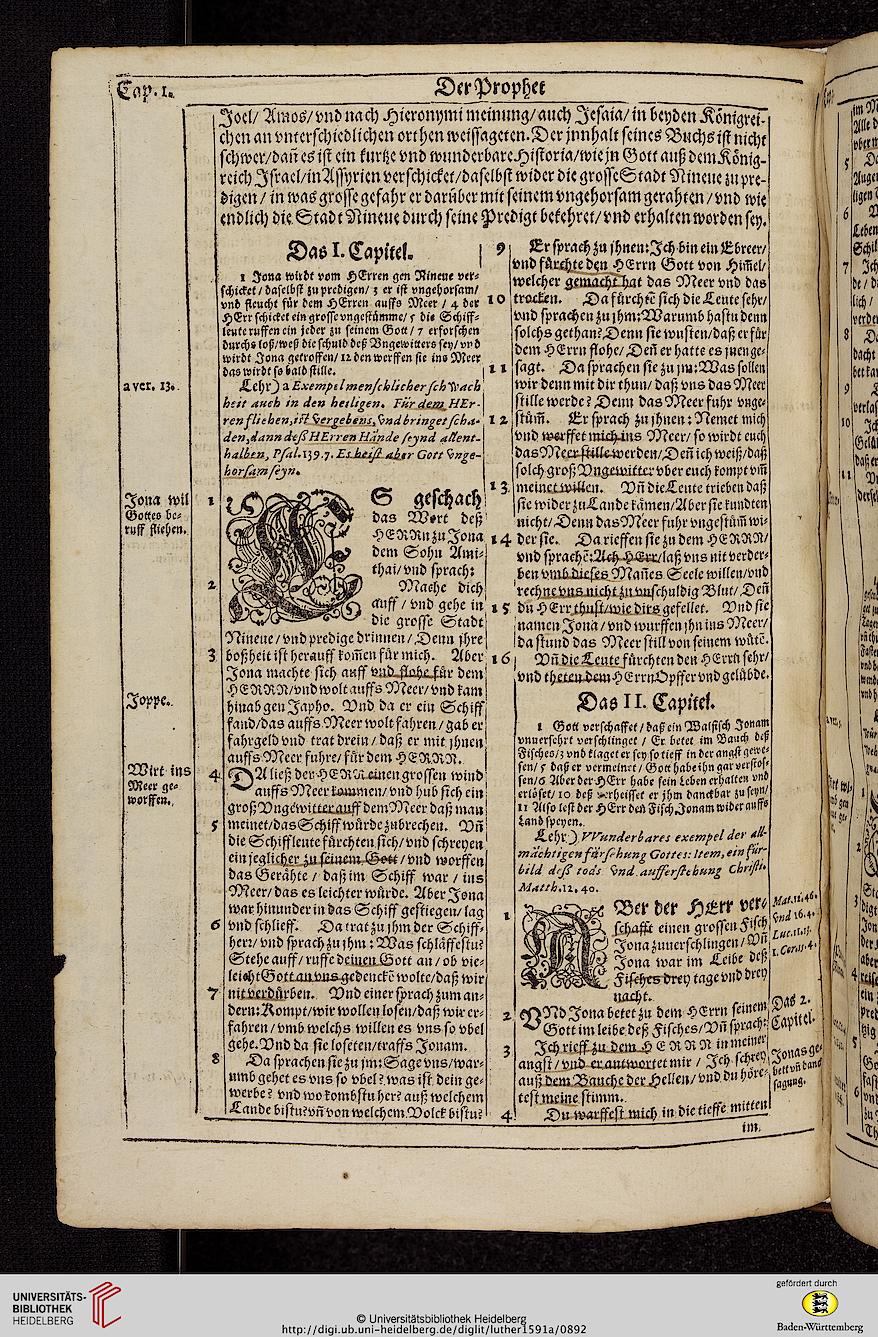 Cap. 1.
Der Prophet
Joel/ Amos/ vnd nach Hieronymi meinung/ auch Jesaia/ in beyden Königrei-
chen an vnterschiedlichen orthen weissageten. Der jnnhalt seines Buchs ist nicht
schwer/ dañ es ist ein kurtze vnd wunderbare Historia/ wie jn Gott auß dem König-
reich Jsrael/ in Assyrien verschicket/ daselbst wider die grosse Stadt Nineue zu pre-
digen / in was grosse gefahr er darüber mit seinem vngehorsam gerahten / vnd wie
endlich die Stadt Nineue durch seine Predigt bekehret/ vnd erhalten worden sey.
Das I. Capitel.
1 Jona wirdt vom HErren gen Nineue ver-
schicket / daselbst zu predigen/ 3 er ist vngehorsam/
vnd fleucht für dem HErren auffs Meer / 4 der
HErr schicket ein grosse vngestümme/ 5 die Schiff-
leute ruffen ein jeder zu seinem Gott / 7 erforschen
durchs loß/ weß die schuld deß Vngewitters sey/ vnd
wirdt Jona getroffen/ 12 den werffen sie ins Meer
das wirdt so bald stille.
a ver. 13.
Lehr) a Exempel menschlicher schwach
heit auch in den heiligen. Für dem HEr-
ren fliehen, ist vergebens, vnd bringet scha-
den, dann deß HErren Hände seynd allent-
halben, Psal. 139. 7. Es heist aber Gott vnge-
horsam seyn.
Jona wil
Gottes be-
ruff fliehen.
1 ES geschach
das Wort deß
HERRn zu Jona
dem Sohn Ami-
thai/ vnd sprach:
2 Mache dich
auff / vnd gehe in
die grosse Stadt
Nineue / vnd predige drinnen / Denn jhre
3 boßheit ist herauff kom̃en für mich. Aber
Jona machte sich auff vnd flohe für dem
HERRN/ vnd wolt auffs Meer/ vnd kam
Joppe.
hinab gen Japho. Vnd da er ein Schiff
fand/ das auffs Meer wolt fahren / gab er
fahrgeld vnd trat drein / daß er mit jhnen
auffs Meer fuhre/ für dem HERRN.
Wirt ins
Meer ge-
worffen.
4 DA ließ der HERR einen grossen wind
auffs Meer kommen/ vnd hub sich ein
groß Vngewitter auff dem Meer daß man
5 meinet/ das Schiff würde zubrechen. Vñ
die Schiffleute fürchten sich/ vnd schreyen
ein jeglicher zu seinem Gott / vnd worffen
das Gerähte / daß im Schiff war / ins
Meer/ das es leichter würde. Aber Jona
war hinunder in das Schiff gestiegen/ lag
6 vnd schlieff. Da trat zu jhm der Schiff-
herr/ vnd sprach zu jhm : Was schläffestu?
Stehe auff / ruffe deinen Gott an / ob vie-
leicht Gott an vns gedenckē wolte/ daß wir
7 nit verdürben. Vnd einer sprach zum an-
dern: Kompt/ wir wollen losen/ daß wir er-
fahren / vmb welchs willen es vns so vbel
gehe. Vnd da sie loseten/ traffs Jonam.
8 Da sprachen sie zu jm: Sage vns/ war-
umb gehet es vns so vbel? was ist dein ge-
werbe? vnd wo kombstu her? auß welchem
Lande bistu? vñ von welchem Volck bistu?
9 Er sprach zu jhnen: Jch bin ein Ebreer/
vnd fürchte den HErrn Gott von Him̃el/
welcher gemacht hat das Meer vnd das
10 trocken. Da fürchtē sich die Leute sehr/
vnd sprachen zu jhm: Warumb hastu denn
solchs gethan? Denn sie wusten/ daß er für
dem HErrn flohe/ Deñ er hatte es jnen ge-
11 sagt. Da sprachen sie zu jm: Was sollen
wir denn mit dir thun/ daß vns das Meer
stille werde? Denn das Meer fuhr vnge-
12 stüm̃. Er sprach zu jhnen : Nemet mich
vnd werffet mich ins Meer/ so wirdt euch
das Meer stille werden/ Deñ ich weiß/ daß
solch groß Vngewitter vber euch kompt vm̃
13 meinet willen. Vñ die Leute trieben daß
sie wider zu Lande kämen/ Aber sie kundten
nicht/ Denn das Meer fuhr vngestüm̃ wi-
14 der sie. Da rieffen sie zu dem HERRN/
vnd sprachē: Ach HErr/ laß vns nit verder-
ben vmb dieses Mañes Seele willen/ vnd
rechne vns nicht zu vnschuldig Blut/ Deñ
15 du HErr thust/ wie dirs gefellet. Vnd sie
namen Jona / vnd wurffen jhn ins Meer/
da stund das Meer still von seinem wütē.
16 Vñ die Leute fürchten den HErrn sehr/
vnd theten dem HErrn Opffer vnd gelübde.
Das II. Capitel.
1 Gott verschaffet / daß ein Walfisch Jonam
vnuersehrt verschlinget / Er betet im Bauch deß
Fisches/ 3 vnd klaget er sey so tieff in der angst gewe-
sen/ 5 daß er vermeinet / Gott habe ihn gar verstos-
sen/ 6 Aber der HErr habe sein Leben erhalten vnd
erlöset/ 10 deß verheisset er jhm danckbar zu seyn/
11 Also lest der HErr den Fisch Jonam wider auffs
Land speyen.
Lehr) Wunderbares exempel der all-
mächtigen fürsehung Gottes: Item, ein für-
bild deß tods vnd aufferstehung Christi.
Matth. 12. 40.
1 ABer der HErr ver-
schafft einen grossen Fisch
Jona zuuerschlingen / Vñ
Jona war im Leibe deß
Fisches drey tage vnd drey
nacht.
Mat. 12. 40.
vnd 16. 4.
Luc. 11. 13.
1. Cor. 15. 4.
Das 2.
Capitel.
2 VNd Jona betet zu dem HErrn seinem
Gott im leibe deß Fisches/ Vñ sprach:
3 Jch rieff zu dem HERRN in meiner
angst / vnd er antwortet mir / Jch schrey
auß dem Bauche der Hellen/ vnd du höre-
test meine stimm.
Jonas ge-
bett vñ danck
sagung.
4 Du warffest mich in die tieffe mitten
im
UNIVERSITÄTS-
BIBLIOTHEK
HEIDELBERG
© Universitätsbibliothek Heidelberg
http://digi.ub.uni-heidelberg.de/diglit/luther1591a/0892
gefördert durch
Baden-Württemberg